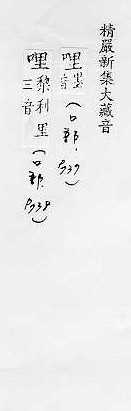 精嚴新集大藏音
哩里音(口部.937)
哩黎利里三音(口部.938)